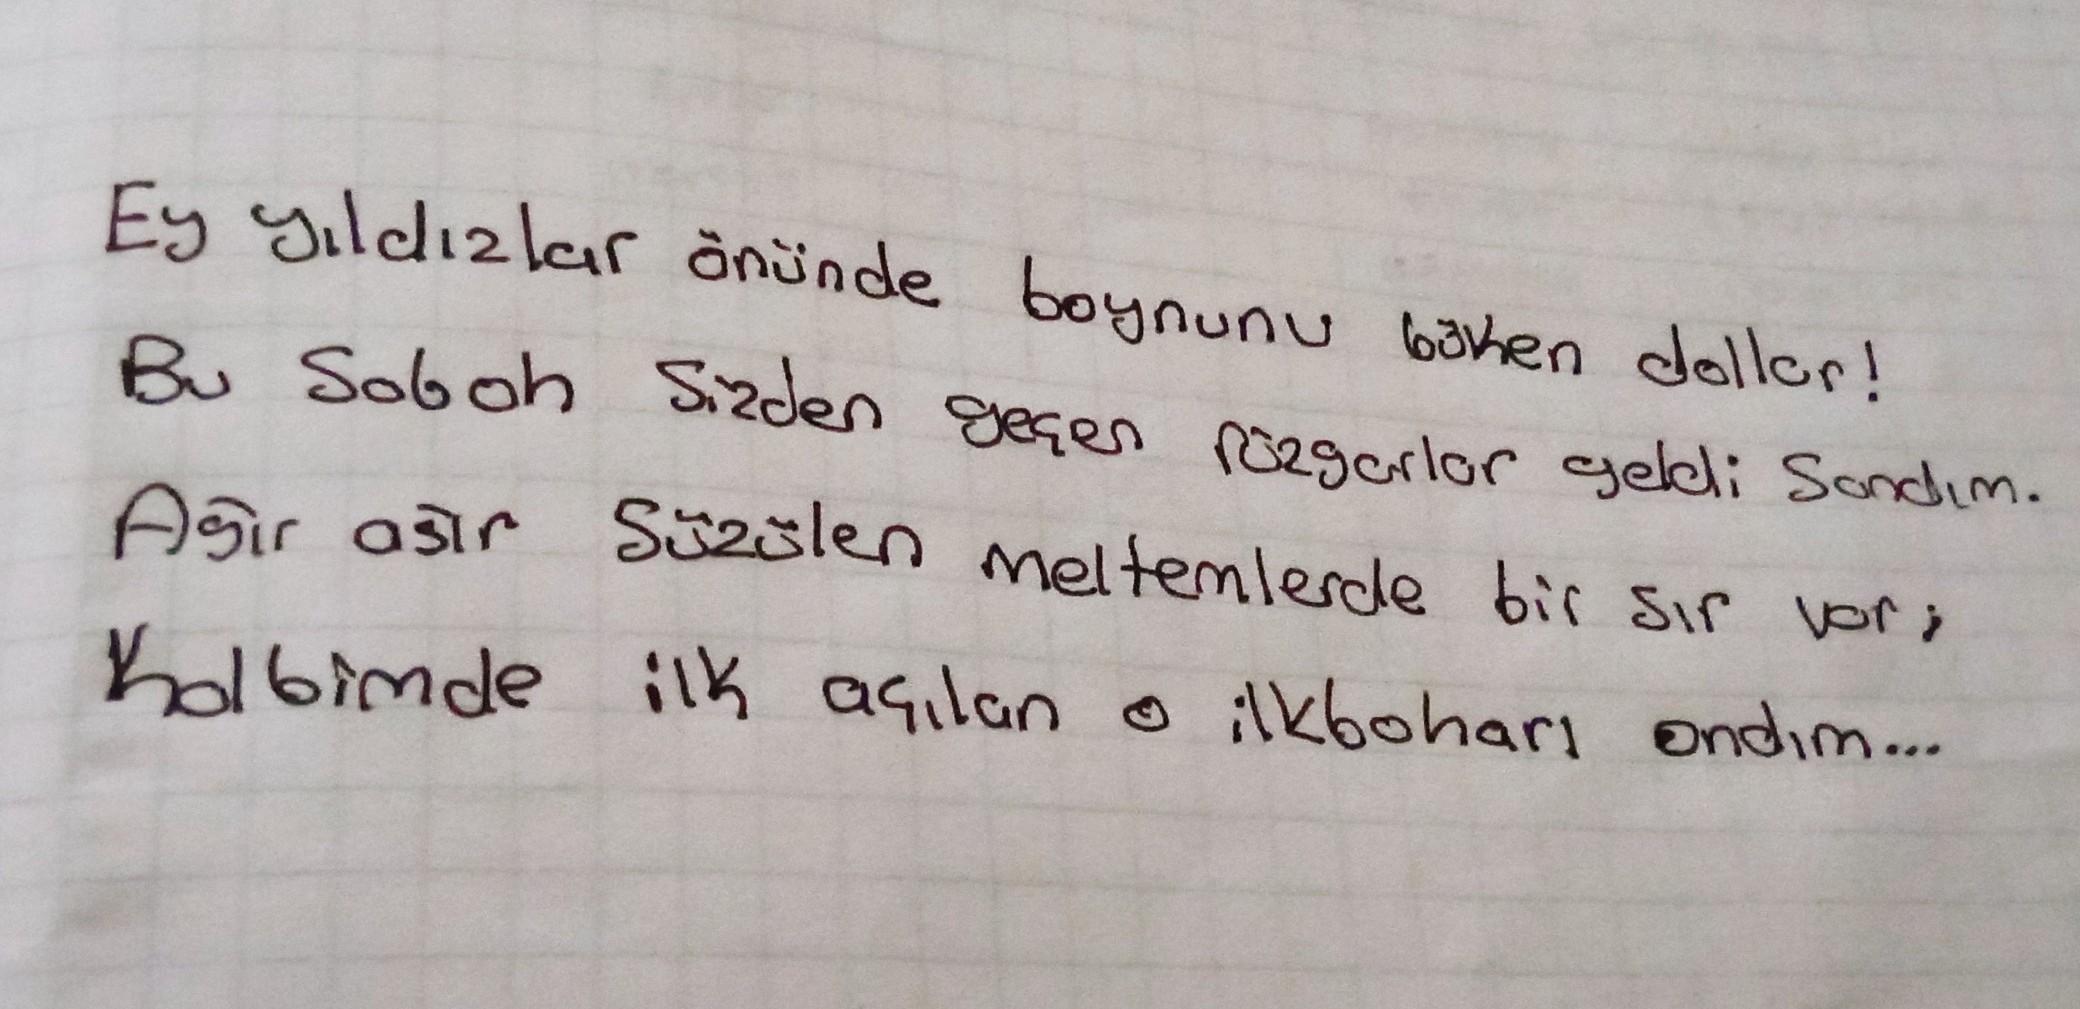 Ey yıldızlar önünde boynunu büken dallar!
Bu Sabah Sizden geçen rüzgarlar geldi Sandım.
Ağır ağır Süzülen meltemlerde bir sır var;
Kalbimde ilk açılan o ilkbaharı andım...